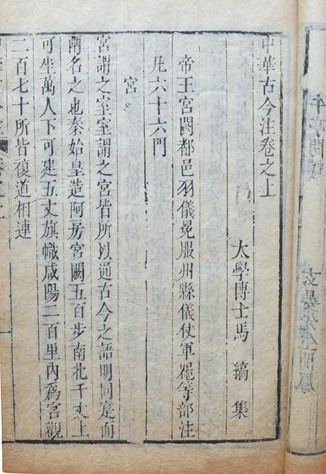 中華古今注卷之上
太學博士馬縞集
帝王宮闕都邑羽儀冕服州縣儀仗軍麾等部注
凡六十六門
宮
宮謂之室室謂之宮皆所以通古今之語明同是而
兩名之也秦始皇造阿房宮闕五百步南北千丈上
可坐萬人下可建五丈旗幟咸陽二百里內爲宮觀
二百七十所皆復道相連